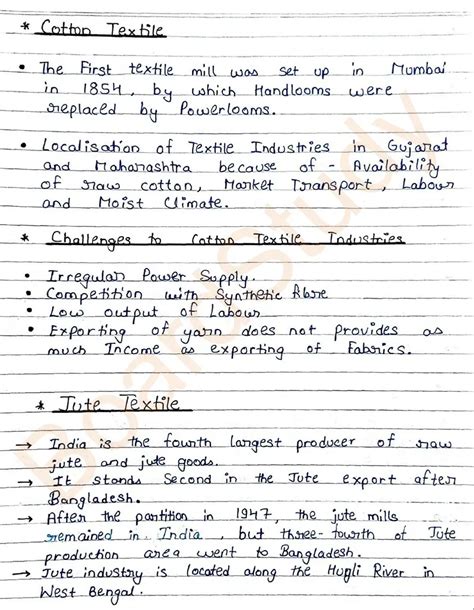 * Cotton Textile
• The First textile mill was set up in Mumbai
in 1854, by which Handlooms were
replaced by Powerlooms.
• Localisation of Textile Industries in Gujarat
and Maharashtra because of - Availability
of raw cotton, Market Transport, Labour
and Moist Climate.
* Challenges to Cotton Textile Industries
• Irregular Power Supply.
• Competition with Synthetic fibre
• Low output of Labour
• Exporting of yarn does not provides as
much Income as exporting of Fabrics.
* Jute Textile
→ India is the fourth largest producer of raw
jute and jute goods.
→ It stands Second in the Jute export after
Bangladesh.
→ After the partition in 1947, the jute mills
remained in India, but three-fourth of Jute
production area went to Bangladesh.
→ Jute industry is located along the Hugli River in
West Bengal.
BoardStudy